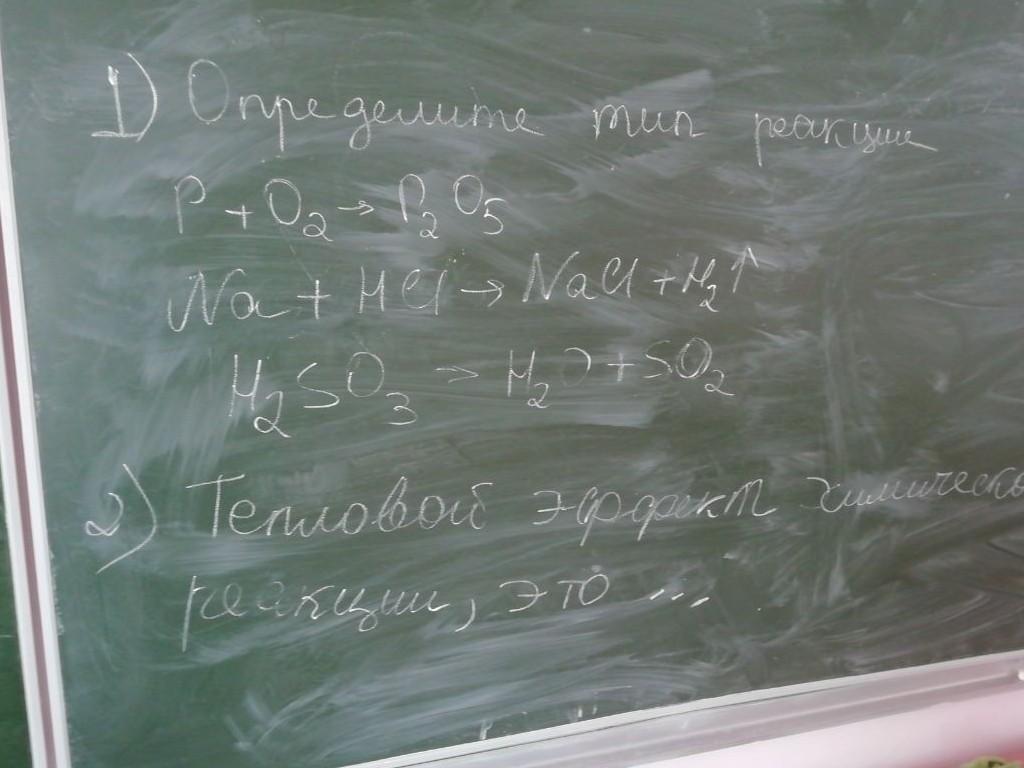 1) Определите тип реакции
P + O₂ → P₂O₅
Na + HCl → NaCl + H₂↑
H₂SO₃ → H₂O + SO₂
2) Тепловой эффект
реакции, это ...